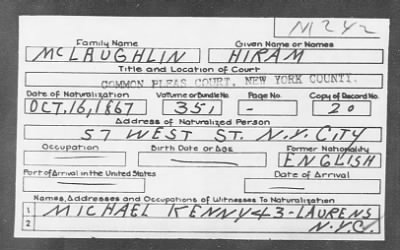 M242
Family Name Given Name or Names
MCLAUGHLIN HIRAM
Title and Location of Court
COMMON PLEAS COURT, NEW YORK COUNTY.
Date of Naturalization Volume or Bundle No. Page No. Copy of Record No.
OCT. 16, 1867 351 - 20
Address of Naturalized Person
57 WEST ST. N.Y. CITY
Occupation Birth Date or Age Former Nationality
ENGLISH
Port of Arrival in the United States Date of Arrival
Names, Addresses and Occupations of Witnesses To Naturalization
1 MICHAEL KENNY 43-LAURENS
2 N.Y.C.